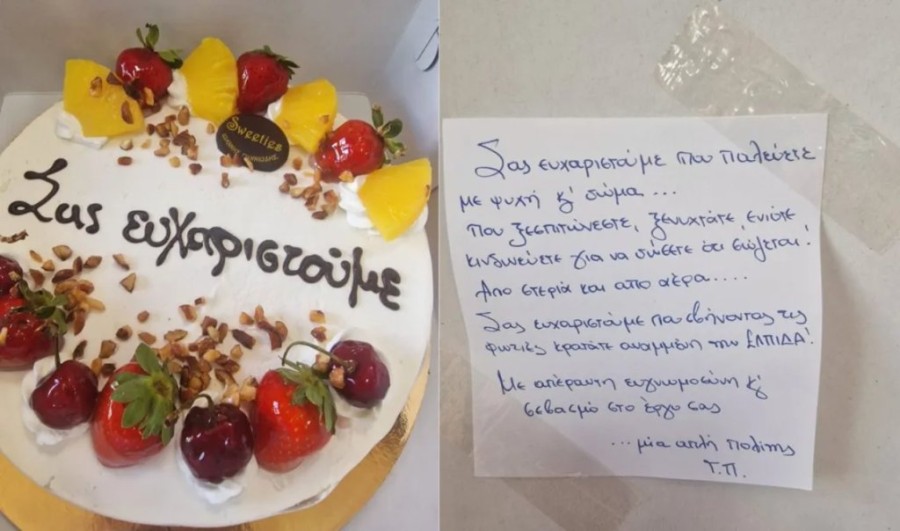 Sweeties
Σας ευχαριστούμε
Σας ευχαριστούμε που παλεύετε
με ψυχή κ' σώμα...
που ξεσπιτώνεστε, ξενυχτάτε ενίοτε
κινδυνεύετε για να σώσετε ότι σώζεται!
Απο στεριά και απο αέρα....
Σας ευχαριστούμε που σβήνοντας τις
φωτιές κρατάτε αναμμένη την ΕΛΠΙΔΑ!
Με απέραντη ευγνωμοσύνη κ'
σεβασμό στο έργο σας
...μία απλή πολίτης
Τ.Π.